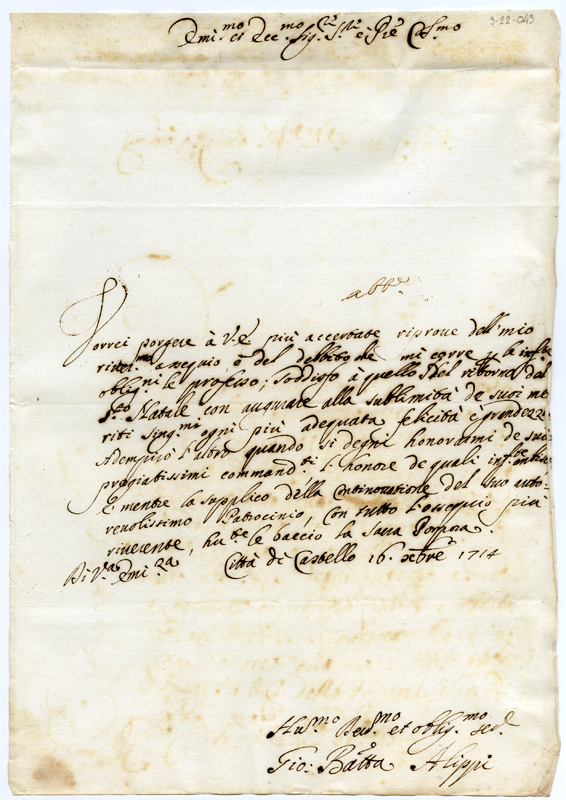 3-22-043
Emi.mo et Rec.mo Sig.r S.re e Pr̃e Col.mo
Vorrei porgere à V.E. più accertate riprove dell' mio
river.mo ossequio, e del debito che mi corre p le infinite
oblig.ni le professo; Soddisfo à quello del ritorno del
S.to Natale con augurare alla sublimità de suoi me
riti sing.mi ogni più adequata felicità e grandezza
Adempirò l'altro quando si degni honorarmi de suoi
pregiatissimi command.ti l'honore de quali inf.te
E mentre la supplico della Continovatione del suo auto.
revolissimo Patrocinio, con tutto l'ossequio più
riverente, hu.te le baccio la Sacra Porpora.
Di V.a Emi.za Città di Castello 16. xbre 1714
Hu.mo Dev.mo et oblig.mo ser.
Gio: Batta Alippi